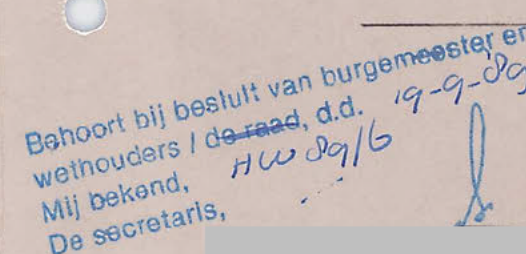 Behoort bij besluit van burgemeester en
wethouders / de raad, d.d. 19-9-89
Mij bekend, HW 89/6
De secretaris,